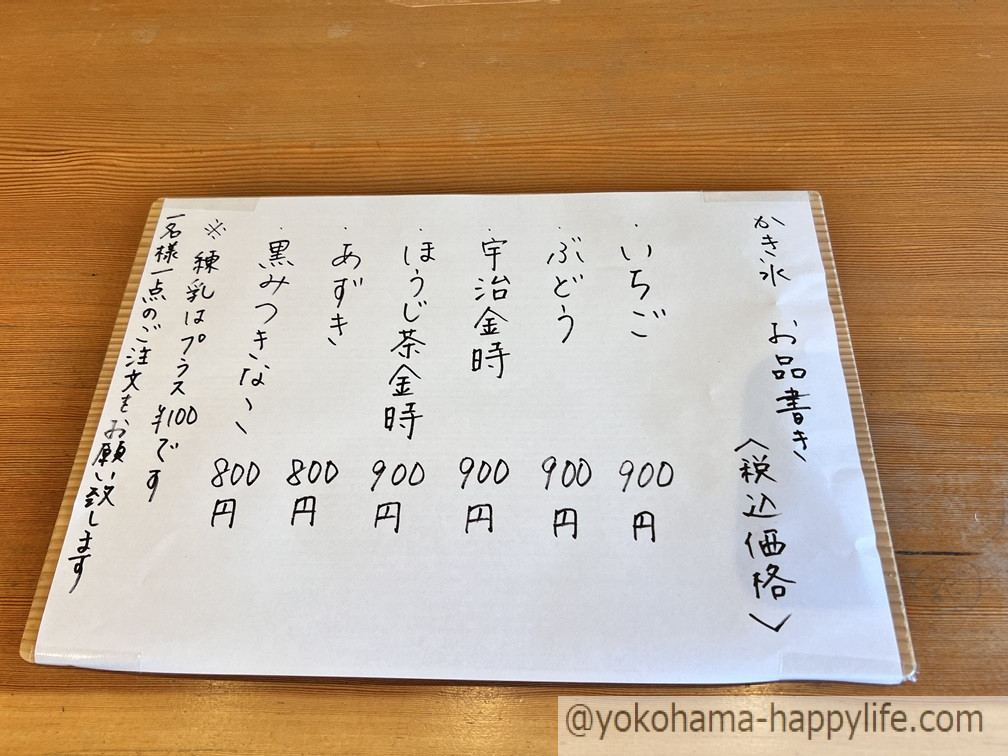 かき氷 お品書き 〈税込価格〉
・いちご 900円
・ぶどう 900円
・宇治金時 900円
・ほうじ茶金時 900円
・あずき 800円
・黒みつきなこ 800円
※練乳はプラス¥100です
一名様一点のご注文をお願い致します
@yokohama-happylife.com